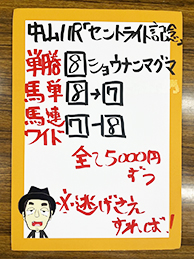 中山11R「セントライト記念」
単勝 8 ショウナンマグマ
馬単 8→7
馬連
ワイド 7-8
全て5000円
ずつ
※逃げさえ
すれば!